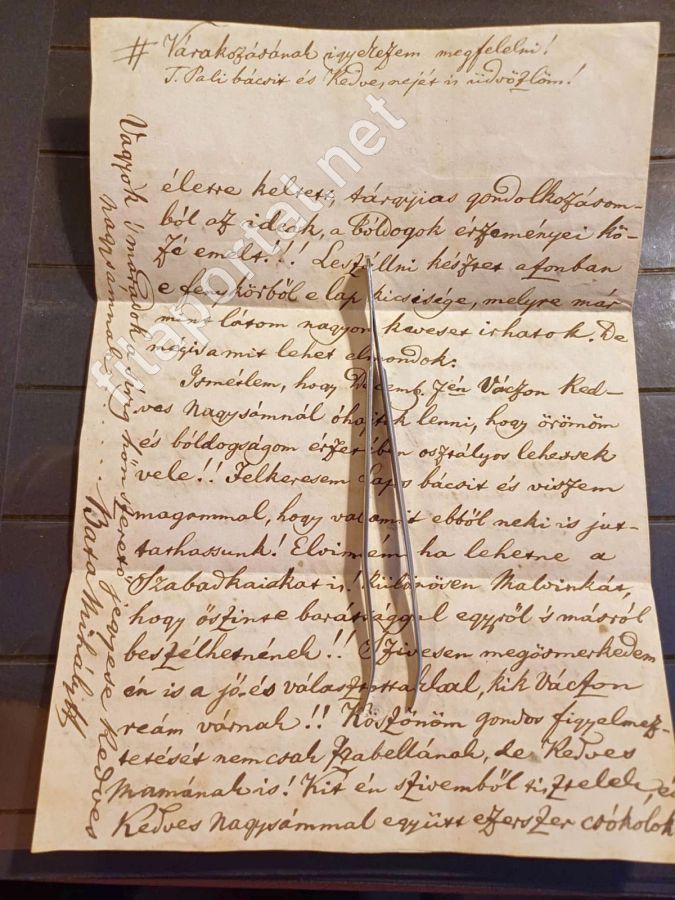 # Várakozásának igyekezem megfelelni!
T. Pali bácsit és Kedves nejét is üdvözlöm!
életre keltett tárgyias gondolkozásom-
ból az ideák, a bóldogok érzeményei kö-
zé emelt!!! Leszállni késztet azonban
e lap kicsisége, melyre már
mint látom nagyon keveset irhatok. De
mégis a mit lehet elmondok.
Ismétlem, hogy Decemb. 7én Váczon Ked-
ves Nagysámnál óhajtok lenni, hogy örömöm
és bóldogságom érzetében osztályos lehessek
vele!! Felkeresem Lajos bácsit és viszem
magammal, hogy valamit ebből neki is jut-
tathassunk! Elvinném ha lehetne a
Szabadkaiakat is! különösen Malvinkát,
hogy őszinte barátsággal egyről s másról
beszélhetnének!! Szivesen megösmerkedem
én is a jó és választottakkal, kik Váczon
reám várnak!! Köszönöm gondos figyelmez-
tetését nemcsak Izabellának, de Kedves
Mamának is! Kit én szivemből tisztelek, és
Kedves Nagysámmal együtt ezerszer csókolok
Vagyok s maradok a sirig hőn szerető jegyese Kedves
Nagysámnak
Bata Mihály
fitaportal.net